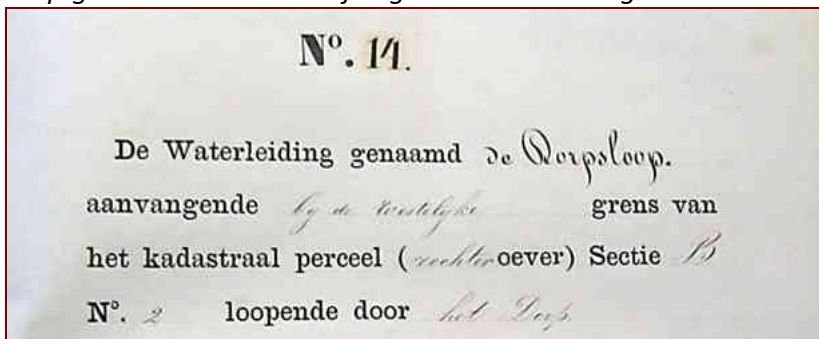 No. 14.
De Waterleiding genaamd de Dorpsloop.
aanvangende by de westelyke grens van
het kadastraal perceel (rechteroever) Sectie B
No. 2 loopende door het Dorp